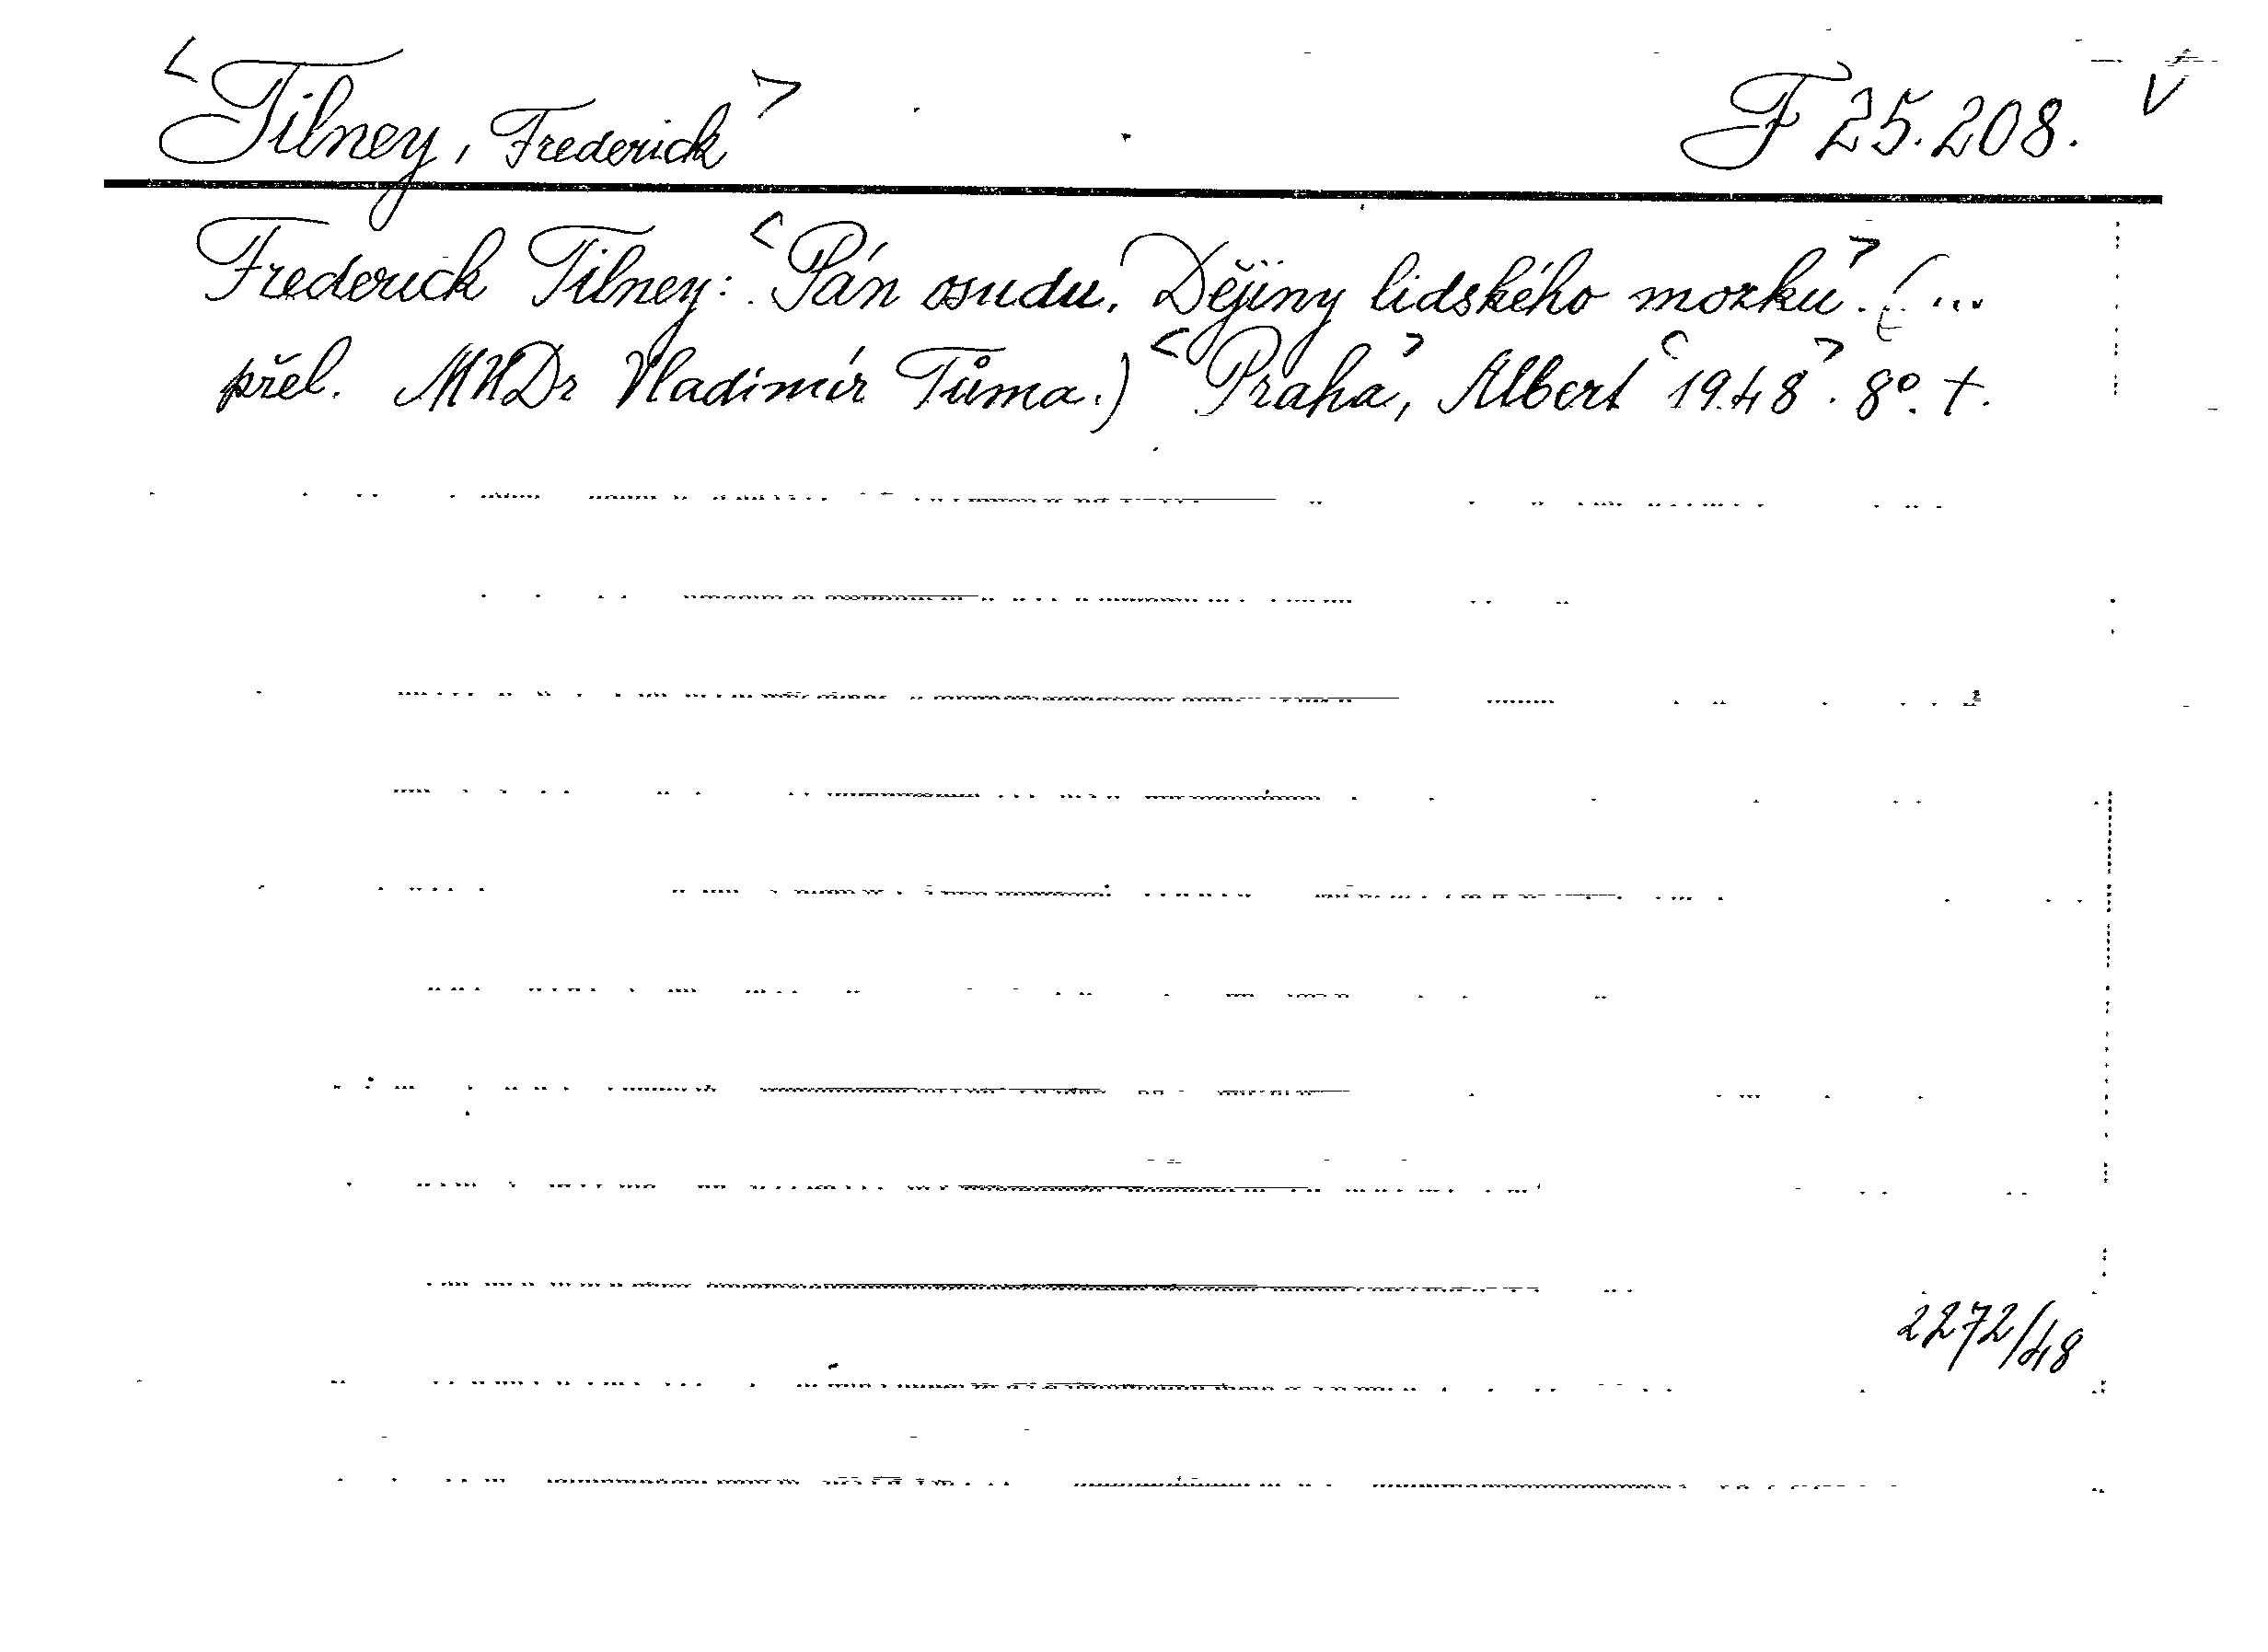 <Tilney, Frederick> F 25.208. V
Frederick Tilney: <Pán osudu. Dějiny lidského mozku>. (...
přel. MUDr Vladimír Tůma.) <Praha>, Albert <1948>. 8°. +.
2272/48